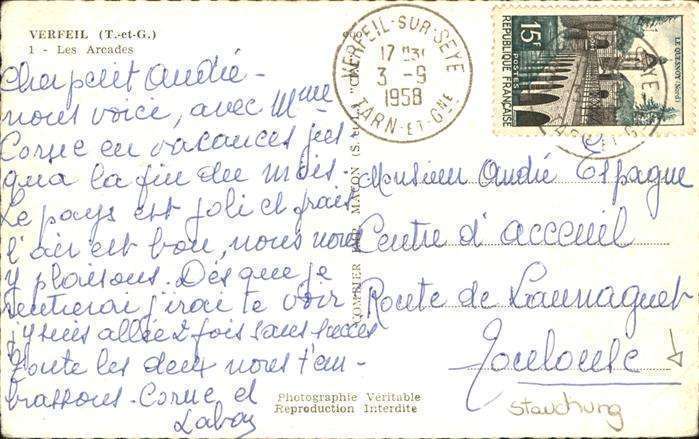 VERFEIL (T.-et-G.)
1 - Les Arcades
Cher petit André -
nous voici, avec Mme
Cornc en vacances jus
qua la fin du mois.
Le pays est joli et frais
l'air est bon, nous nous
y plaisons. Dès que je
rentrerai j'irai te voir
j'y suis allée 2 fois sans succès
Toute les deux nous t'em-
brassons - Cornc et
VERFEIL-SUR-SEYE
17 H
3 - 9
1958
TARN-ET-GNE
15F
POSTES
REPUBLIQUE FRANÇAISE
LE QUESNOY (Nord)
COMBIER MACON (S.
Monsieur André Espagne
Centre d'acceuil
Route de Launaguet
Toulouse
Photographie Véritable
Reproduction Interdite
Stauchung